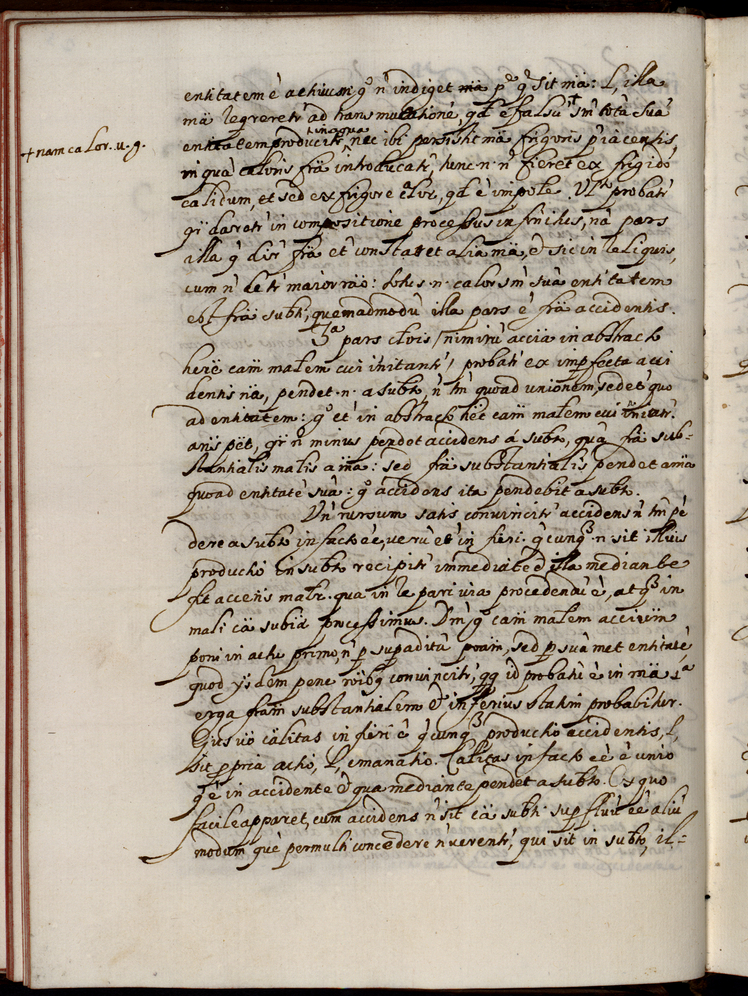 entitatem è actiuum g° n' indiget mã p° q° sit mã: l, illa
mã legreretr' ad transmutationé, qd' è falsu' + sm' totã suã
entitatem producitr' in aqua, nec ibi persistit mã frigoris p'iacentis,
+ nam calor. u. g.
in quã caloris frã introducatr', tunc n. n' fieret ex frigido
calidum, et sed ex frigore calor, qd' è impole. probatr'
qr daretr' in compositione processus in fnitus, nã pars
illa q' dir' frã et' constaret alia mã, & sic in reliquis,
cum n' detr' maior rãо: n. calor sm' suã entitatem
est frã subti, quemadmodũ illa pars è frã accidentis.
3ª pars clois, nimirũ accia in abstracto
here cam malem cui initantr', probatr' ex impfecta acci
dentis nã, pendet n. a subto, n' tm' quoad unionem, sed et' quo
ad entitatem: g° et' in abstracto het cam malem cui initatr'.
ans pet, qr n' minus pendet accidens à subto, quã frã sub=
stantialis malis a mã: sed frã substantialis pendet a mã
quoad entitaté suã: g° accidens ita pendebit a subto.
Un' rursum satis convincitr' accidens n' tm' pé
dere a subto in facto eé, verũ et' in fieri. q'cunq3 n. sit illius
productio in subto recipitr' immediate & illa mediante
accens matr. qua in re pari via procedendũ è, atq3 in
mali cã subia pncessimus. g° cam malem accium
poni in actu primo, n' p supadditũ poam, sed p suã met entitaté
quod ysdem pene roibq convincitr', qq id probatũ è in mã 1ª
erga fram substantialem & inferius statim probabitur.
Eius uò cãlitas in fieri è q'cunq3 productio accidentis, l,
sit ppria actio, l, emanatio. Calitas in facto eé è unio
q' è in accidente & qua mediante pendet a subto. Ex quo
facile apparet, cum accidens n' sit cã subti supfluũ eé aliũ
modum què permulti concedere n' verentr', qui sit in subto, il=